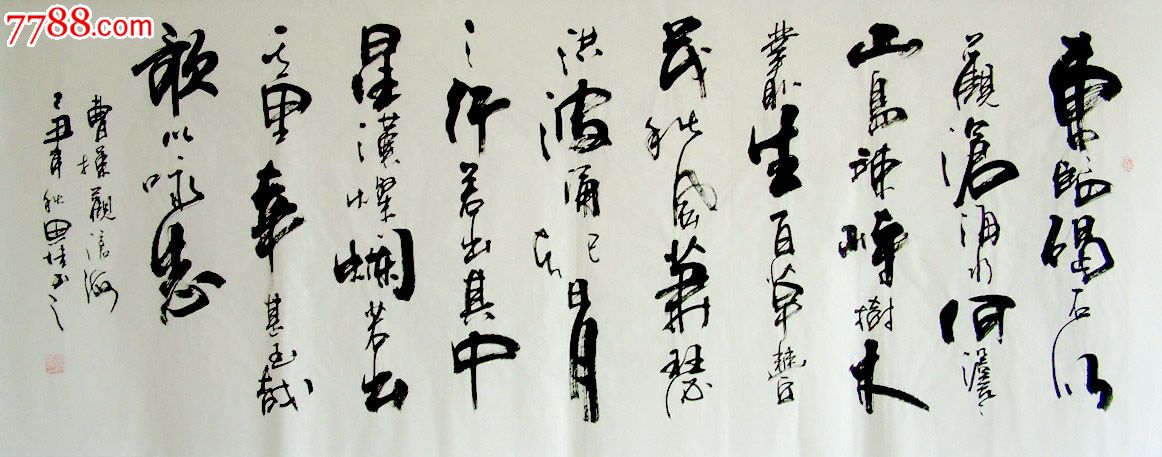 7788.com
東臨碣石以
觀滄海水何澹々
山島竦峙樹木
叢生百草豐
茂秋風蕭瑟
洪波涌起日月
之行若出其中
星漢燦爛若出
其里幸甚至哉
歌以咏志
曹操觀滄海
己丑年秋田